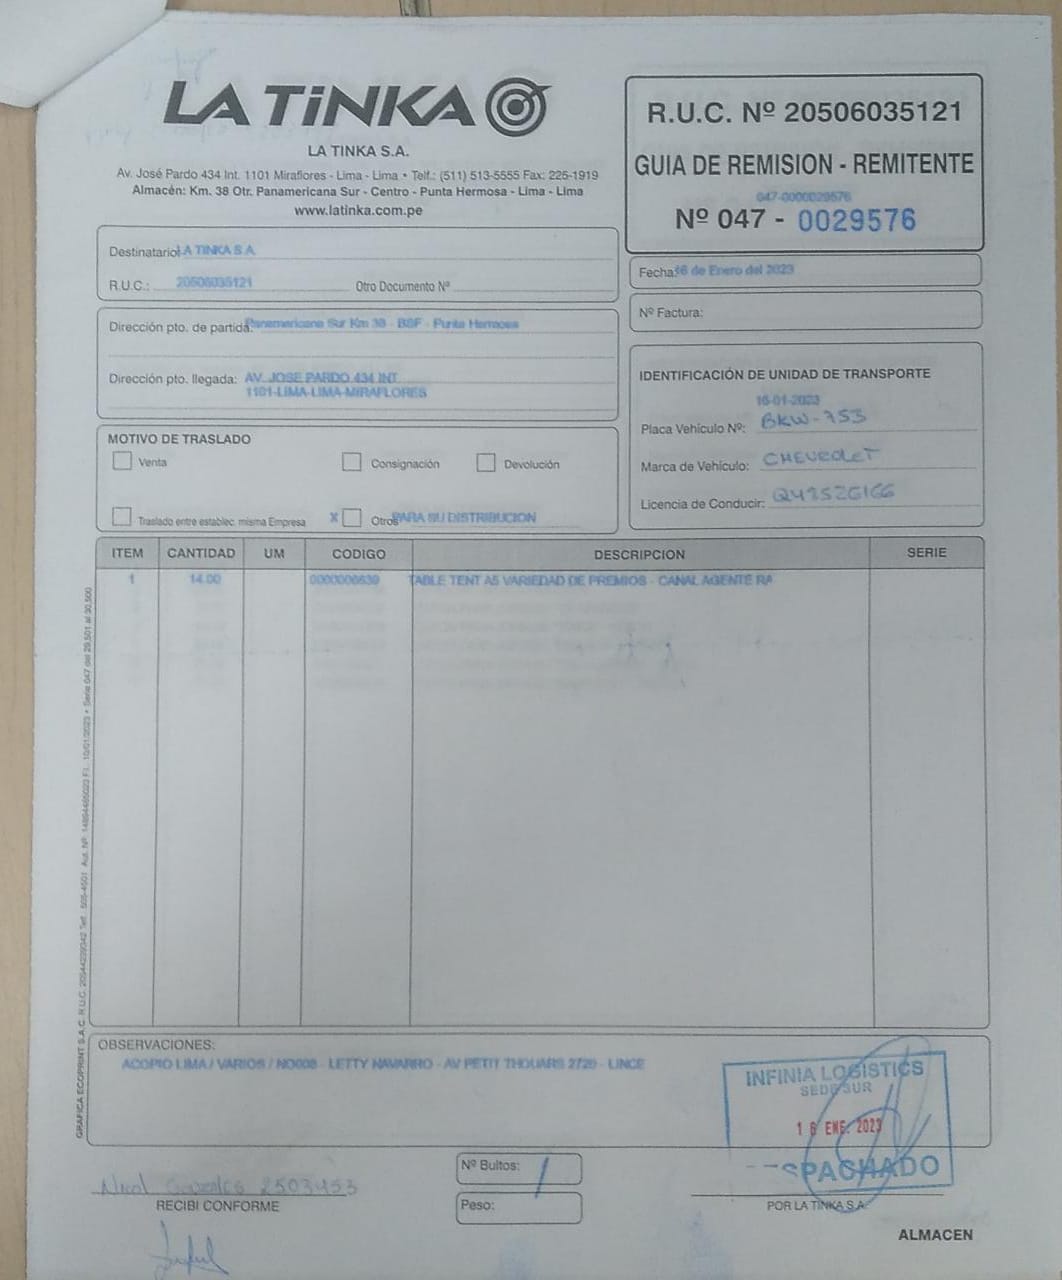 LA TiNKA
LA TINKA S.A.
Av. José Pardo 434 Int. 1101 Miraflores - Lima - Lima • Telf.: (511) 513-5555 Fax: 225-1919
Almacén: Km. 38 Otr. Panamericana Sur - Centro - Punta Hermosa - Lima - Lima
www.latinka.com.pe
R.U.C. Nº 20506035121
GUIA DE REMISION - REMITENTE
047-0000029576
Nº 047 - 0029576
Destinatario LA TINKA S A
R.U.C.: 20506035121 Otro Documento Nº
Fecha: 16 de Enero del 2023
Nº Factura:
Dirección pto. de partida: Panamericana Sur Km 38 - BSF - Punta Hermosa
Dirección pto. llegada: AV. JOSE PARDO 434 INT
1101-LIMA-LIMA-MIRAFLORES
IDENTIFICACIÓN DE UNIDAD DE TRANSPORTE
16-01-2023
Placa Vehículo Nº: BKW-753
Marca de Vehículo: CHEVROLET
Licencia de Conducir:
MOTIVO DE TRASLADO
Venta Consignación Devolución
Traslado entre establec. misma Empresa X Otros PARA SU DISTRIBUCION
ITEM CANTIDAD UM CODIGO DESCRIPCION SERIE
1 14.00 0000006639 TABLE TENT A5 VARIEDAD DE PREMIOS - CANAL AGENTE RA
OBSERVACIONES:
ACOPIO LIMA / VARIOS / NO008 - LETTY NAVARRO - AV PETIT THOUARS 2720 - LINCE
INFINIA LOGISTICS
SEDE SUR
16 ENE. 2023
SPACHADO
Nº Bultos: 1
Peso:
2503453
RECIBI CONFORME
POR LA TINKA S.A.
ALMACEN